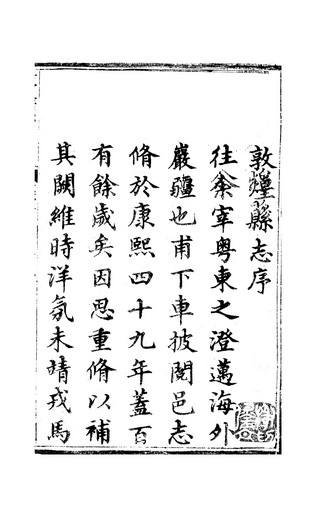 敦煌縣志序
往余宰粤東之澄邁海外
巖疆也甫下車披閱邑志
脩於康熙四十九年蓋百
有餘歲矣因思重脩以補
其闕維時洋氛未靖戎馬